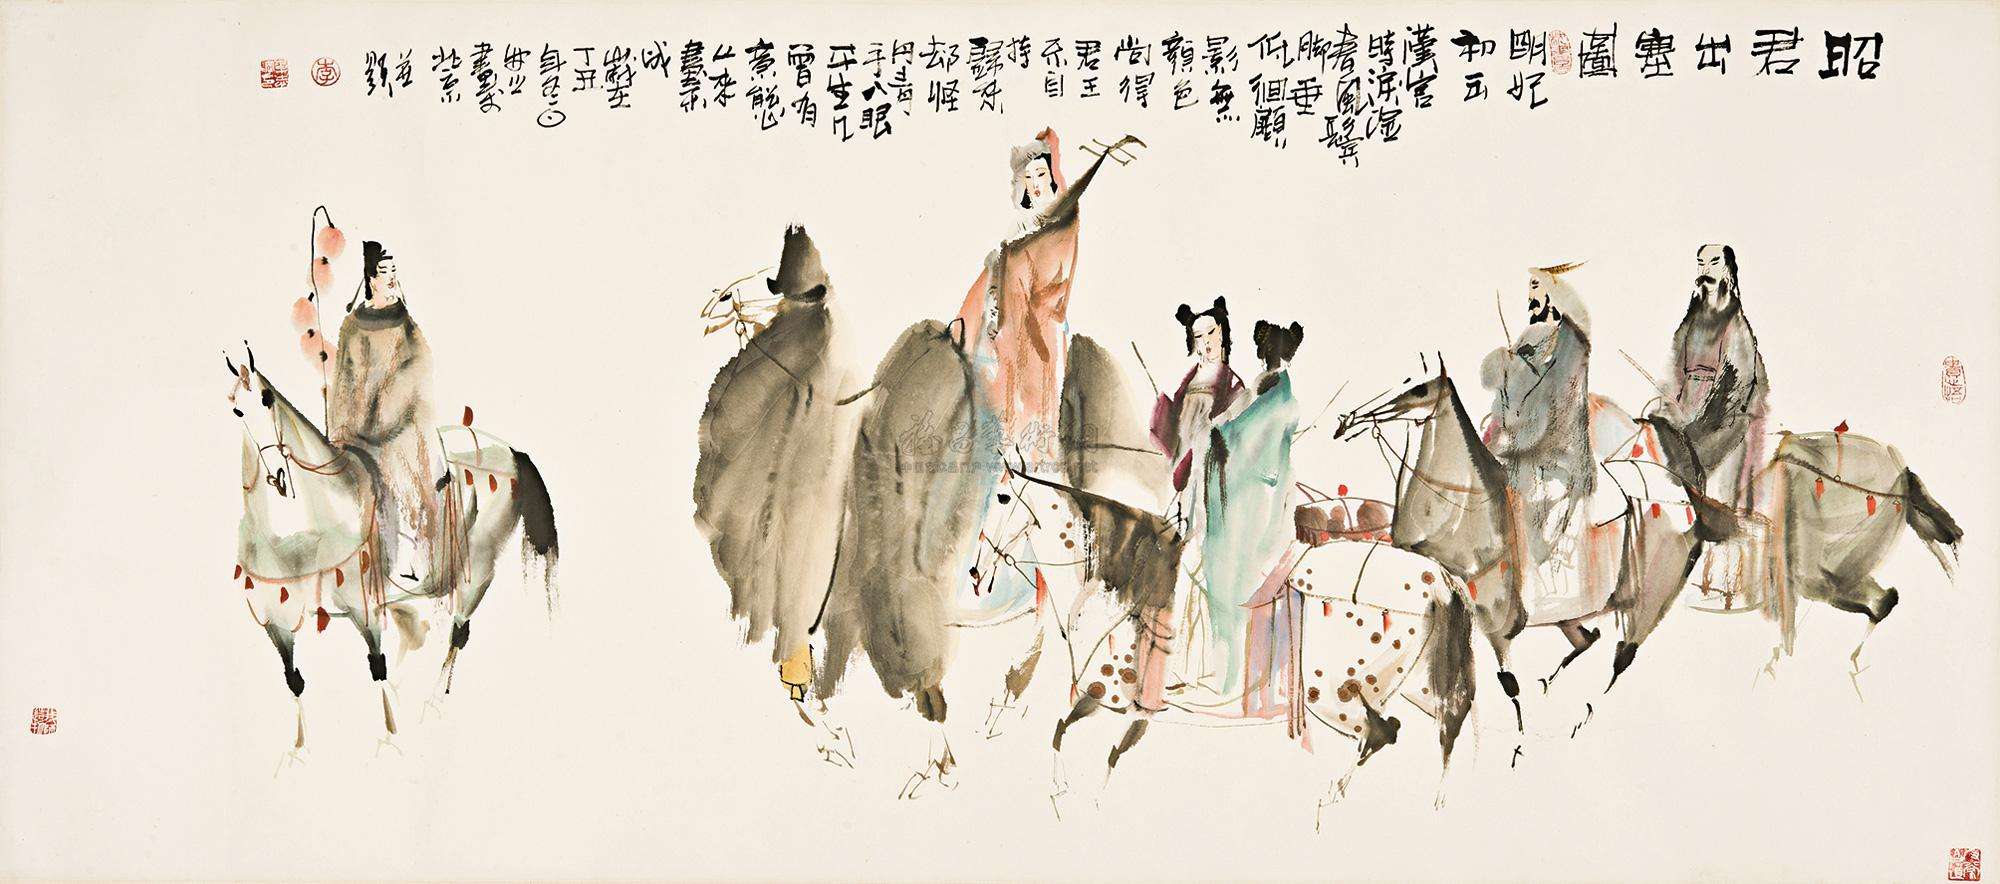 昭君出塞圖
明妃
初出
漢宮
時淚濕
春風鬢
脚垂
低徊顧
影無
顏色
尚得
君王
不自
持
歸來
却怪
丹青
手入眼
平生几
曾有
意態
由來
畫不
成
歲在
丁丑
年冬
畫於
北京
並
題
李